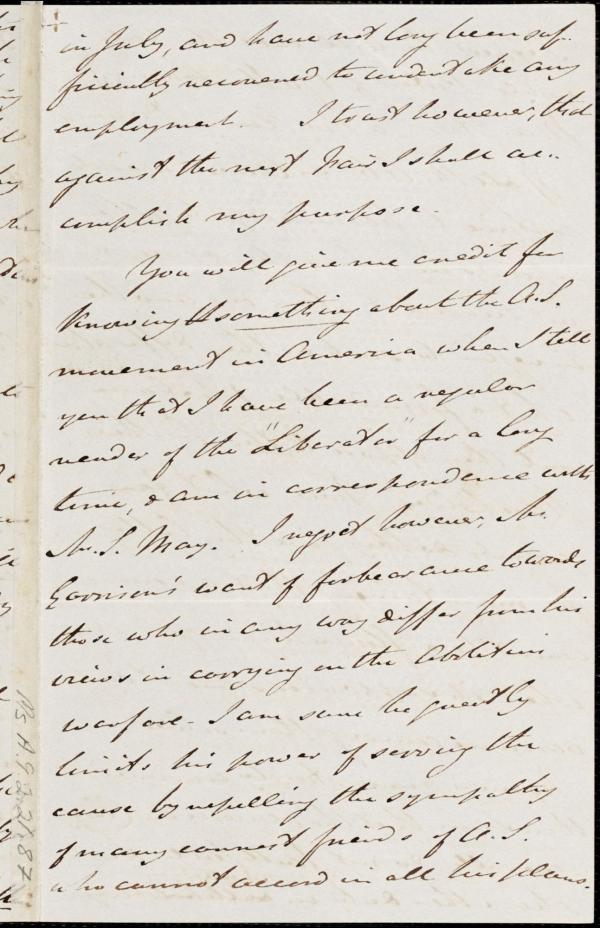 in July, and have not long been suf-
ficiently recovered to undertake any
employment. I trust however, that
against the next Fair I shall ac-
complish my purpose.
You will give me credit for
knowing something about the A.S.
movement in America when I tell
you that I have been a regular
reader of the "Liberator" for a long
time, & am in correspondence with
Mr. S. May. I regret however, Mr.
Garrison's want of forbearance towards
those who in any way differ from his
views in carrying on the Abolition
warfare - I am sure he greatly
limits his power of serving the
cause by repelling the sympathy
of many earnest friends of A.S.
who cannot accord in all his plans.
Ms. A.9.2.28,87